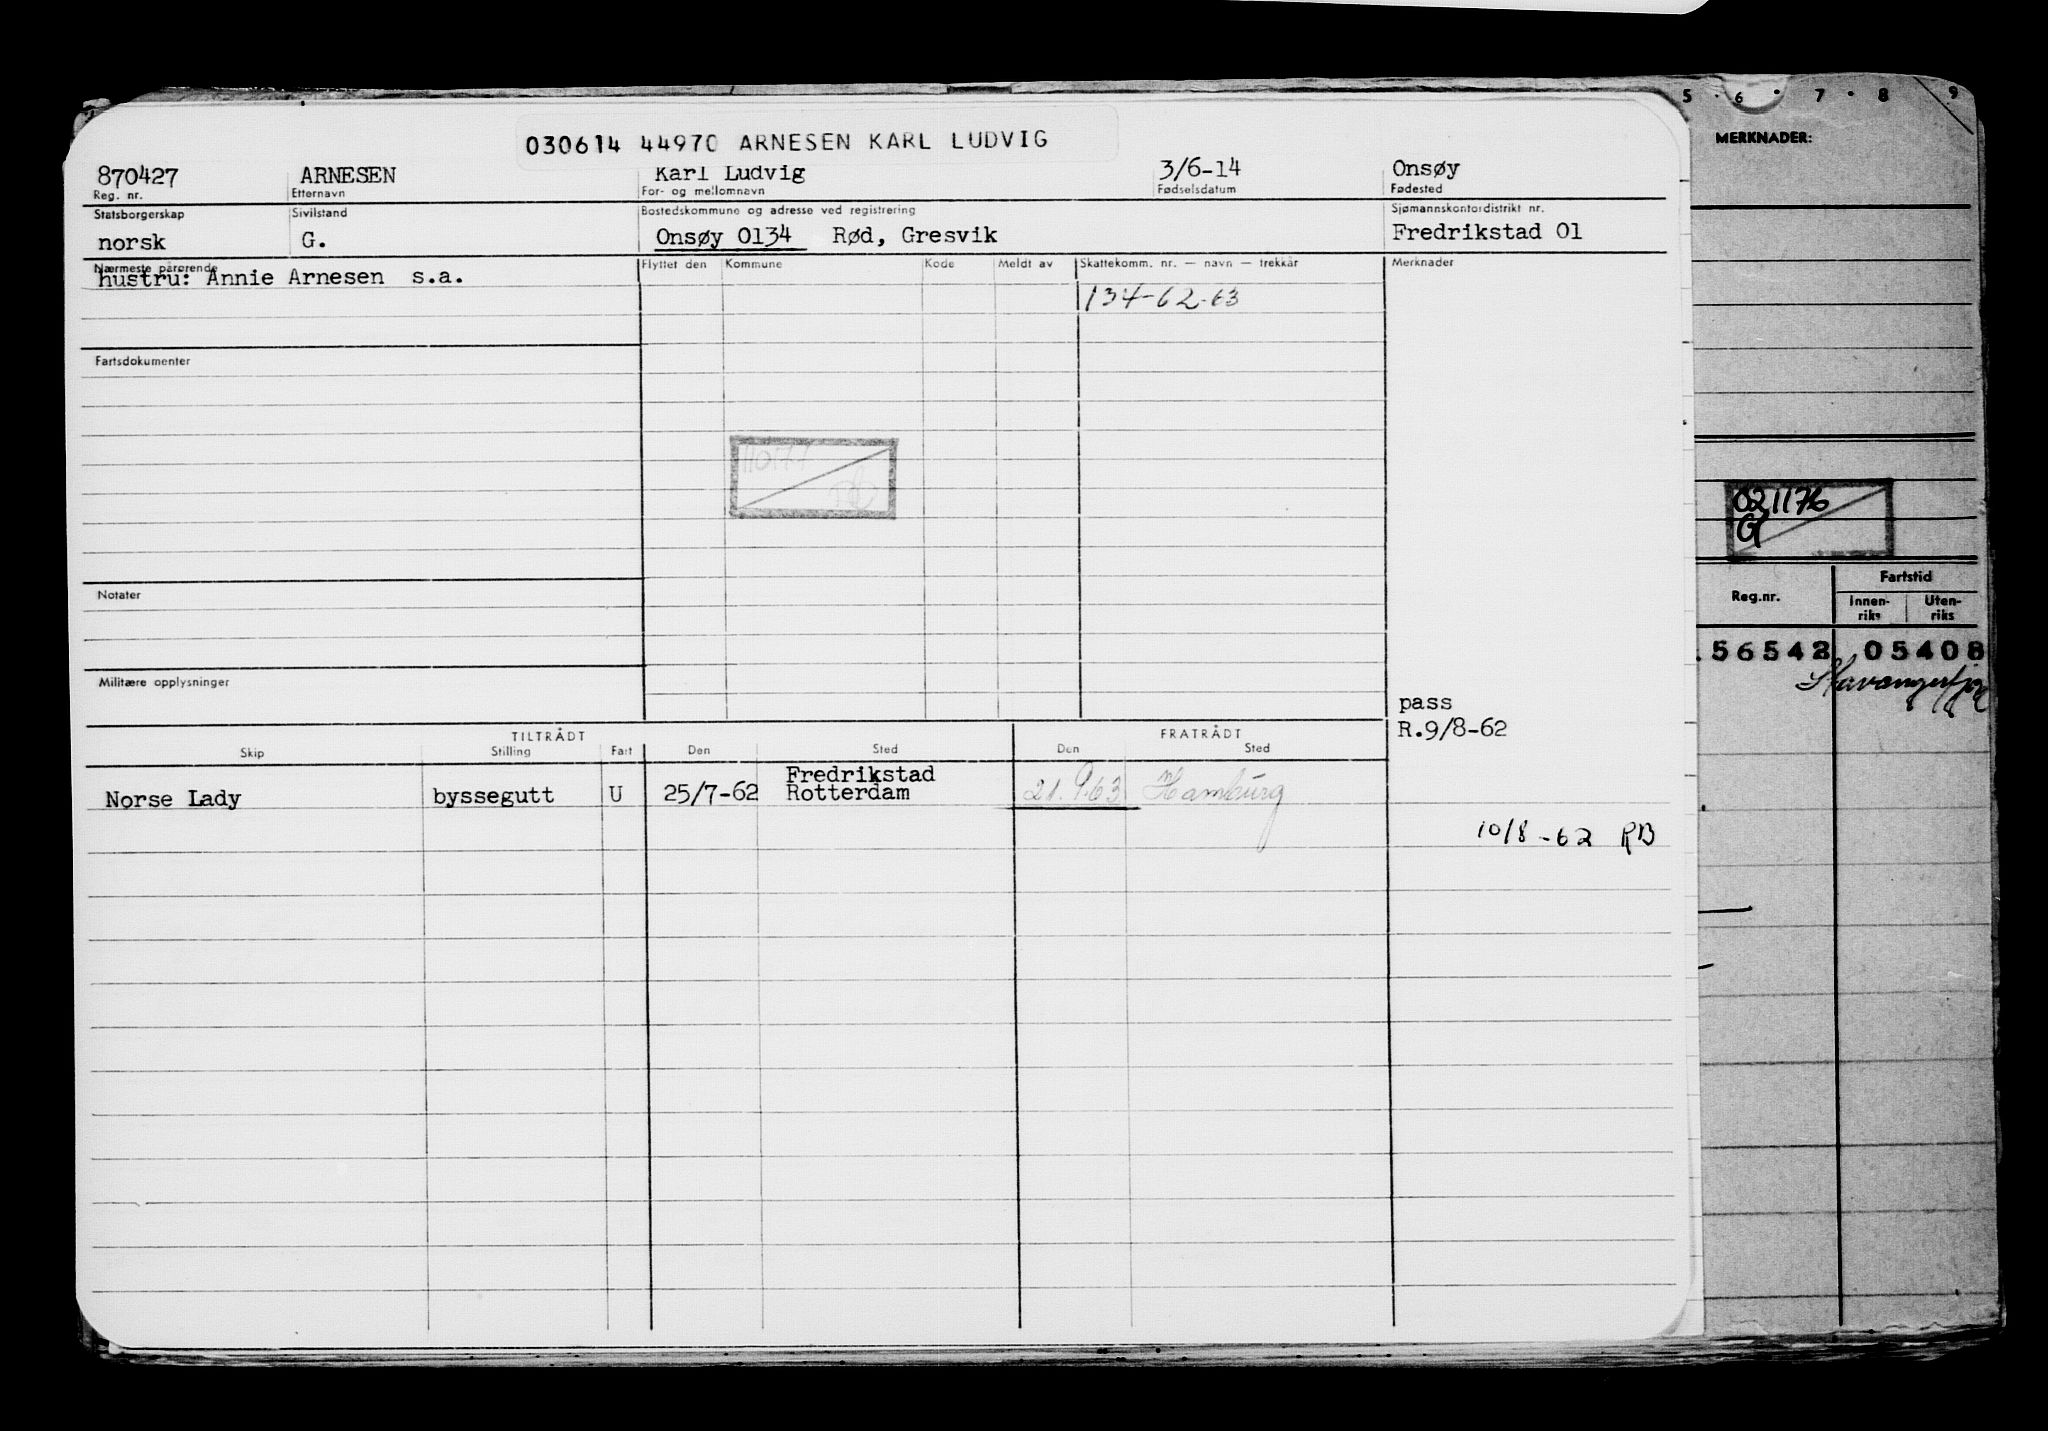 5 · 6 · 7 · 8 9
MERKNADER:
030614 44970 ARNESEN KARL LUDVIG
870427 ARNESEN Karl Ludvig 3/6-14 Onsøy
Reg. nr. Etternavn For- og mellomnavn Fødselsdatum Fødested
Statsborgerskap Sivilstand Bostedskommune og adresse ved registrering Sjømannskontordistrikt nr.
norsk G. Onsøy 0134 Rød, Gresvik Fredrikstad 01
Nærmeste pårørende Flyttet den Kommune Kode Meldt av Skattekomm. nr. — navn — trekkår Merknader
hustru: Annie Arnesen s.a.
134-62-63
Fartsdokumenter
110177
021176
G
Notater
Fartstid
Reg.nr. Innen-riks Uten-riks
56542 05408
Militære opplysninger
pass
R.9/8-62
TILTRÅDT FRATRÅDT
Skip Stilling Fart Den Sted Den Sted
Fredrikstad
Norse Lady byssegutt U 25/7-62 Rotterdam 21.9.63 Hamburg
10/8-62 RB